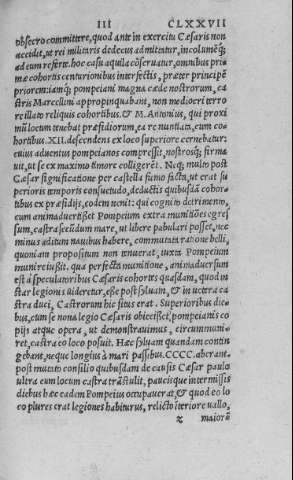 III CLXXVII
obsecro committere, quod ante in exercitu Cæsaris non
accidet, ut rei militaris dedecus admittatur, incolumémq;
ad eum referte. hoc casu aquila cõseruatur, omnibus pri=
mæ cohortis centurionibus interfectis, præter principē
priorem. iamq; pompeiani magna cæde nostrorum, ca
stris Marcellini appropinquabant, non mediocri terro
re illato reliquis cohortibus. & M. Antonius, qui proxi
mũ locum tenebat præsidiorum, ea re nuntiata, cum co=
hortibus .XII. descendens ex loco superiore cernebatur:
cuius aduentus pompeianos compressit, nostrosq; firma=
uit, ut se ex maximo timore colligerēt. Neq; multo post
Cæsar significatione per castella fumo facta, ut erat su
perioris temporis consuetudo, deductis quibusdã cohor
tibus ex præsidijs, eodem uenit: qui cognito detrimento,
cum animaduertisset Pompeium extra munitiões egres
sum, castra secũdum mare, ut libere pabulari posset, nec
minus aditum nauibus habere, commutata ratione belli,
quoniam propositum non tenuerat, iuxta Pompeium
munire iussit. qua perfecta munitione, animaduersum
est à speculatoribus Cæsaris cohortis quasdam, quod in
star legionis uideretur, esse post syluam, & in uetera ca
stra duci. Castrorum hic situs erat. Superioribus die=
bus, cum se nona legio Cæsaris obiecisset pompeianis co
pijs atque opera, ut demonstrauimus, circummuni=
ret, castra eo loco posuit. Hæc syluam quandam contin
gebant, neque longius à mari passibus .CCCC. aberant.
post mutato consilio quibusdam de causis Cæsar paulo
ultra eum locum castra trãstulit, paucisque intermissis
diebus hæc eadem Pompeius occupauerat, & quod eo lo
co plures erat legiones habiturus, relicto iteriore uallo,
z maiorē